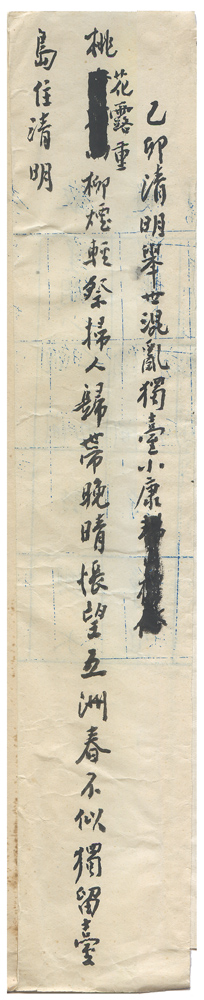 乙卯清明舉世混亂獨臺小康
桃花露重柳煙輕祭掃人歸帶晚晴悵望五洲春不似獨留臺
島住清明